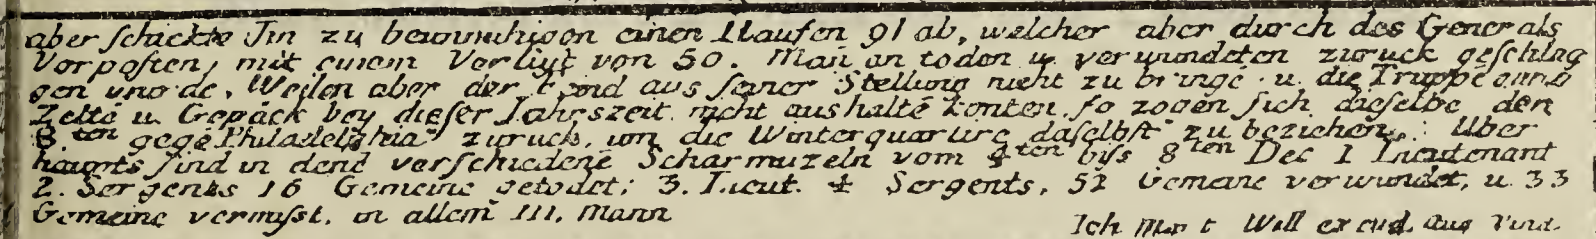 aber schickte Jm zu beunruhigen einen Haufen 91 ab, welcher aber durch des Generals
Vorposten, mit einem Verlust von 50. Man an toden u. verwundeten zuruck geschlag
gen wurde, Weilen aber der Feind aus seiner Stellung nicht zu bringē u. die Truppe ohne
Zeltē u. Gepäck bey dieser Jahrszeit nicht aushaltē konten, so zogen sich dieselbe den
8.ten gegē Philadelphia zuruck, um die Winterquartire daselbst zu beziehen. Uber
haupts sind in denē verschiedenē Scharmuzeln vom 4ten biss 8ten Dec 1 Lieutenant
2. Sergents 16 Gemeine getodet; 3. Lieut. 4 Sergents, 52 Gemeine verwundet, u. 33
Gemeine vermisst. in allem 111. Mann
Will